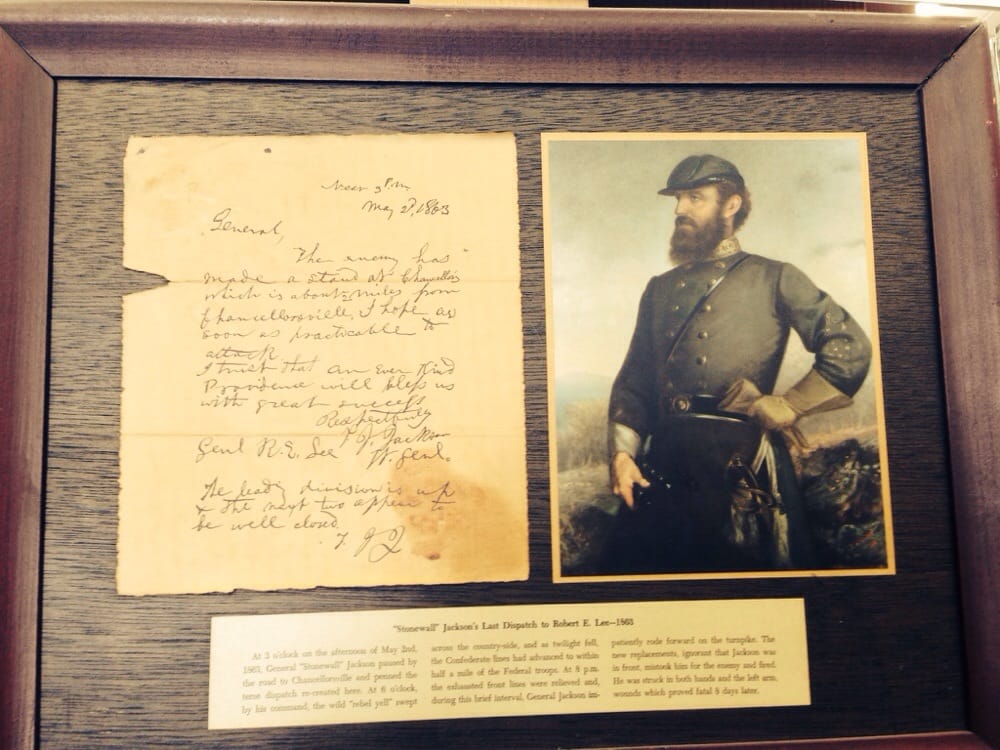 Near 3 P.m
May 2d, 1863
General,
The enemy has
made a stand at Chancellor's
which is about 2 miles from
Chancellorsville, I hope as
soon as practicable to
attack
I trust that an Ever Kind
Providence will bless us
with great success
Respectfully
T. J. Jackson
Genl R. E. Lee Lt. Genl.
The leadg division is up
& the next two appear to
be well closed
T. J. J.
"Stonewall" Jackson's Last Dispatch to Robert E. Lee—1863
At 3 o'clock on the afternoon of May 2nd,
1863, General "Stonewall" Jackson paused by
the road to Chancellorsville and penned the
terse dispatch re-created here. At 6 o'clock,
by his command, the wild "rebel yell" swept
across the country-side, and as twilight fell,
the Confederate lines had advanced to within
half a mile of the Federal troops. At 8 p.m.
the exhausted front lines were relieved and,
during this brief interval, General Jackson im-
patiently rode forward on the turnpike. The
new replacements, ignorant that Jackson was
in front, mistook him for the enemy and fired.
He was struck in both hands and the left arm,
wounds which proved fatal 8 days later.